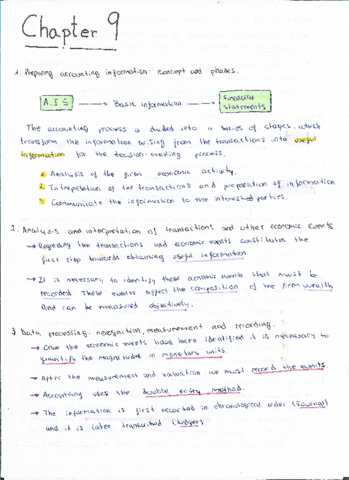 Chapter 9
1. Preparing accounting information: concept and phases.
A.I.S → Basic information → Financial statements
The accounting process is divided into a series of stages which
transform the information arising from the transactions into useful
information for the decision making process.
1. Analysis of the firm economic activity.
2. Interpretation of the transactions and preparation of information
3. Communicate the information to the interested parties.
2. Analysis and interpretation of transactions and other economic events
→ Regarding the transactions and economic events constitutes the
first step towards obtaining useful information
→ It is necessary to identify those economic events that must be
recorded. These events affect the composition of the firm wealth
and can be measured objectively.
3. Data processing: recognition, measurement and recording.
→ Once the economic events have been identified it is necessary to
quantify the magnitudes in monetary units.
→ After the measurement and valuation we must record the events
→ Accounting uses the double entry method.
→ The information is first recorded in chronological order (Journal)
and it is later transcribed (Ledger).